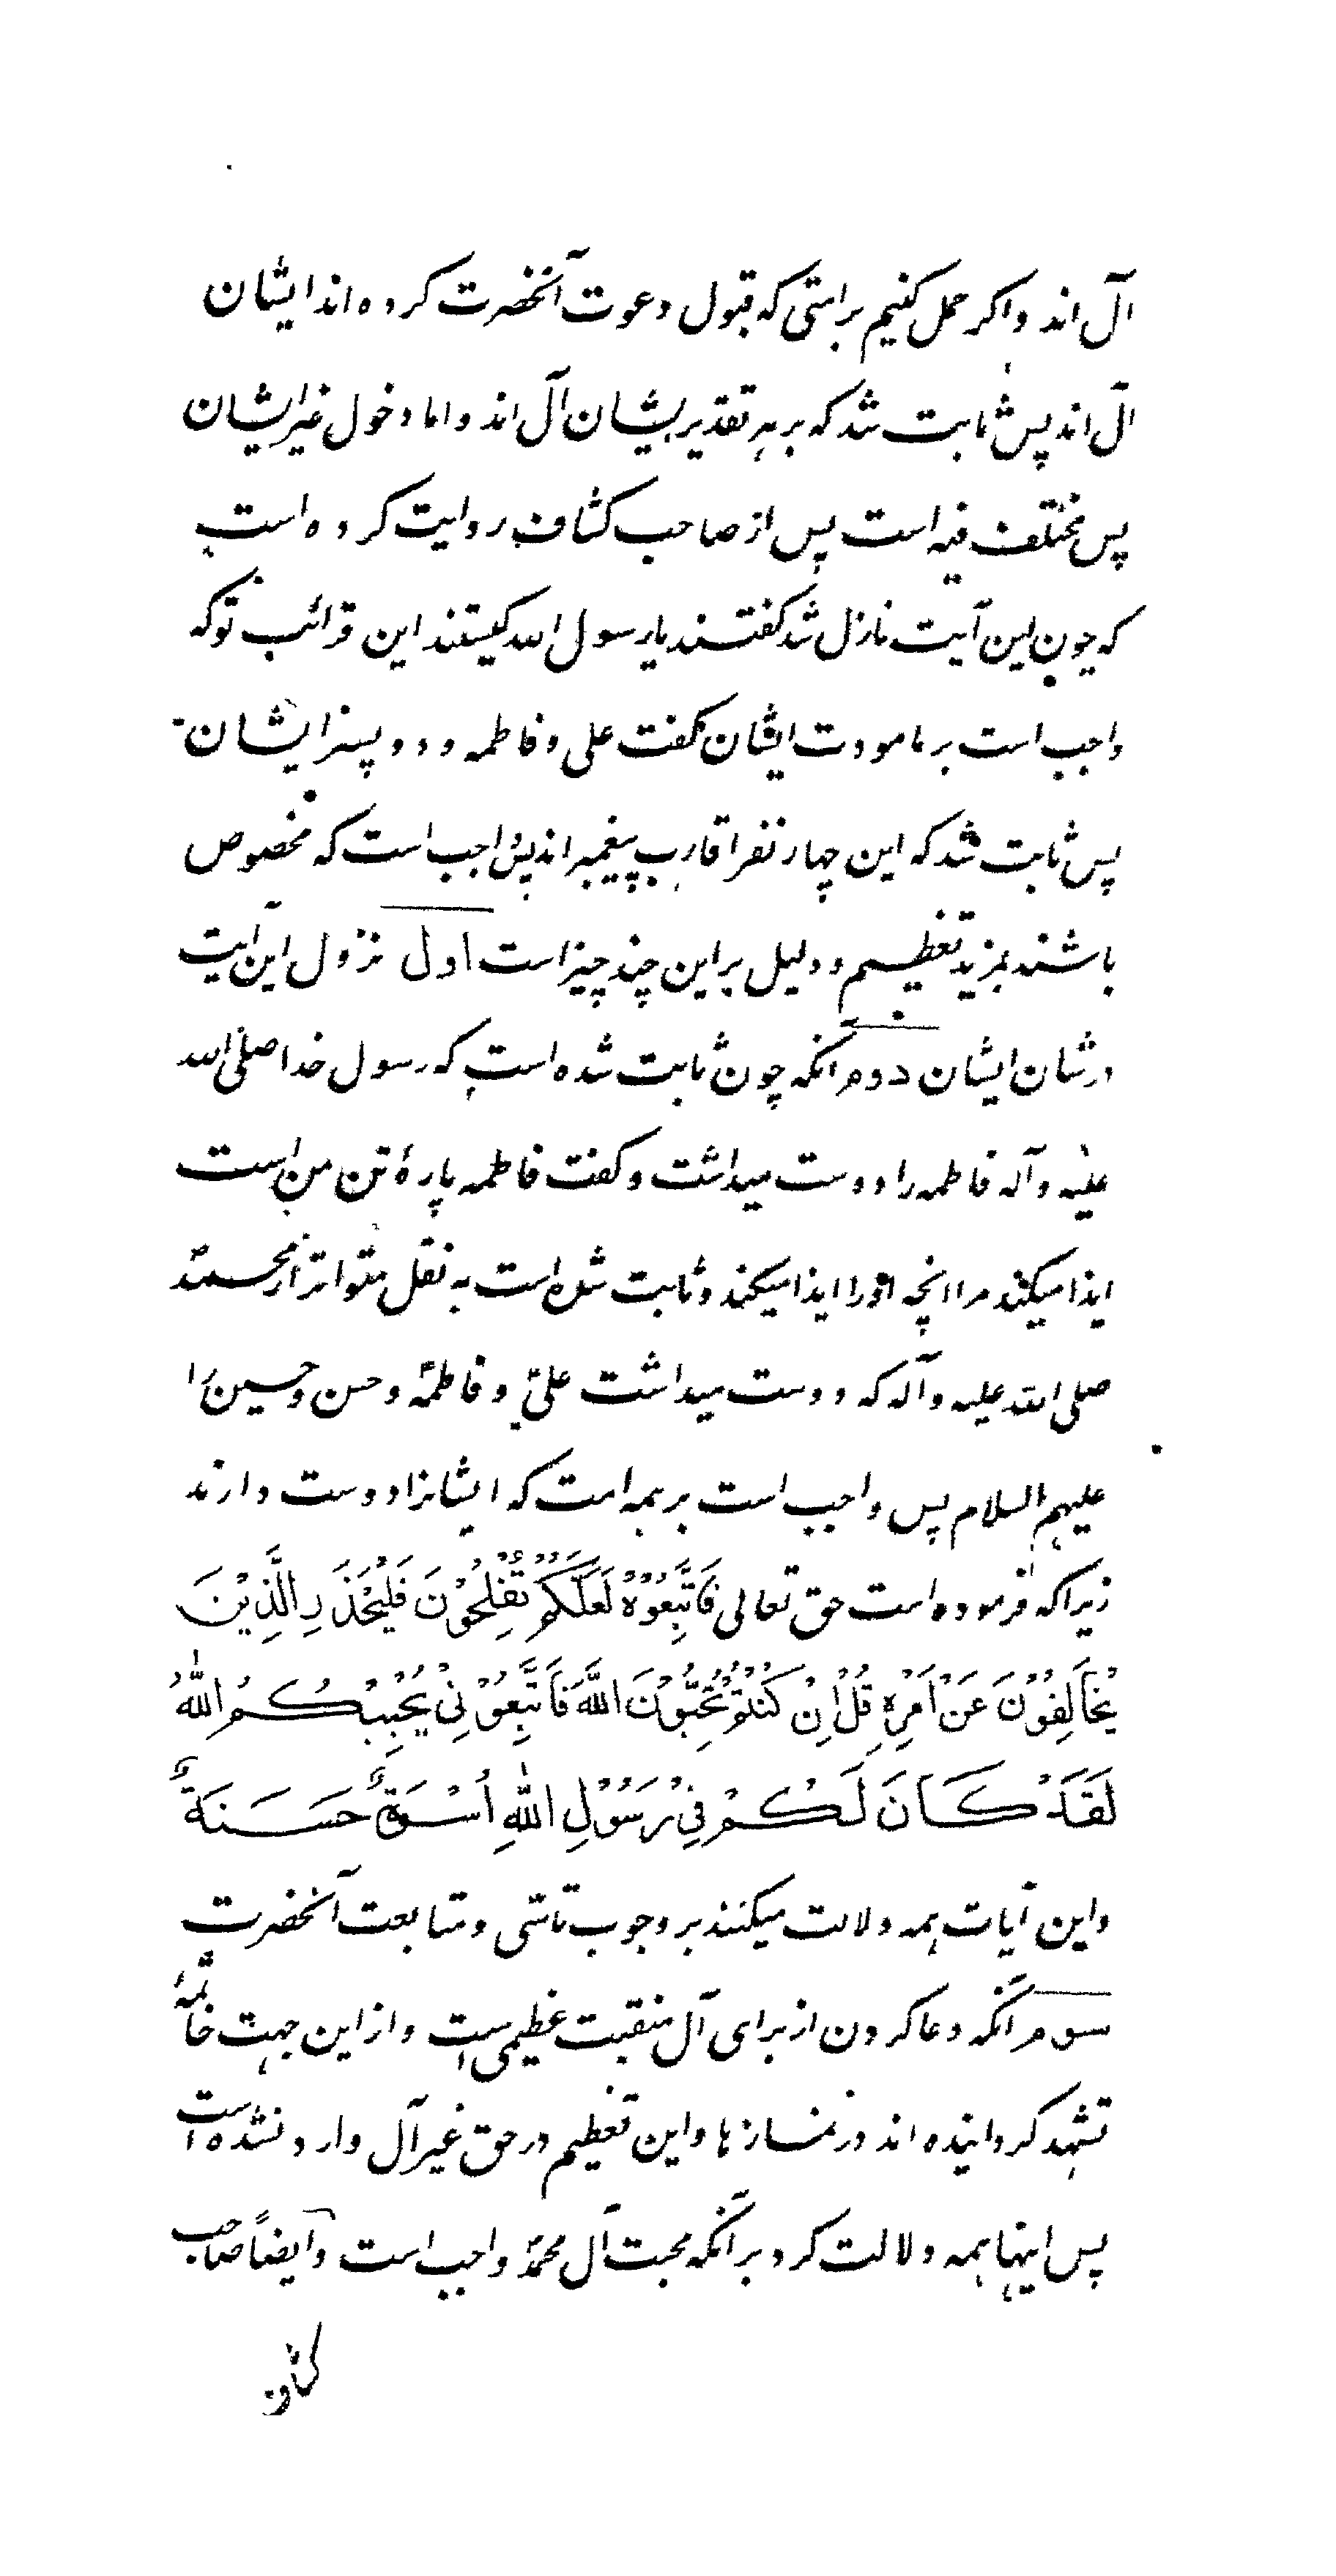 آل اند و اکر حمل کنیم بر امتی که قبول دعوت آنحضرت کرده اند ایشان
آل اند پس ثابت شد که بر هر تقدیر ایشان آل اند و اما دخول غیر ایشان
پس مختلف فیه است پس از صاحب کشاف روایت کرده است
که چون این آیت نازل شد کفتند یا رسول الله کیستند این قرائب تو که
واجب است بر ما مودت ایشان کفت علی و فاطمه و دو پسر ایشان
پس ثابت شد که این چهار نفر اقارب پیغمبر اند پس واجب است که مخصوص
باشند بمزید تعظیم و دلیل بر این چند چیز است اول نزول این آیت
در شان ایشان دوم آنکه چون ثابت شده است که رسول خدا صلی الله
علیه و آله فاطمه را دوست میداشت و کفت فاطمه پارهٔ تن من است
ایذا میکند مرا انچه اورا ایذا میکند و ثابت شده است به نقل متواتر از محمدؐ
صلی الله علیه و آله که دوست میداشت علیؑ و فاطمهؑ و حسن و حسین را
علیهم السلام پس واجب است بر همه امت که ایشانرا دوست دارند
زیرا که فرموده است حق تعالی فَاتَّبِعُوْهُ لَعَلَّكُمْ تُفْلِحُوْنَ فَلْيَحْذَرِ الَّذِيْنَ
يُخَالِفُوْنَ عَنْ اَمْرِهِ قُلْ اِنْ كُنْتُمْ تُحِبُّوْنَ اللَّهَ فَاتَّبِعُوْنِيْ يُحْبِبْكُمُ اللّٰهُ
لَقَدْ كَانَ لَكُمْ فِيْ رَسُوْلِ اللّٰهِ اُسْوَةٌ حَسَنَةٌ
و این آیات همه دلالت میکنند بر وجوب تاسّی و متابعت آنحضرت
سوم آنکه دعا کردن از برای آل منقبت عظیمی است و از این جهت خاتمهٔ
تشهد کردانیده اند در نمازها و این تعظیم در حق غیر آل وارد نشده است
پس اینها همه دلالت کرد بر آنکه محبت آل محمدؐ واجب است و ایضاً صاحب
کشاف